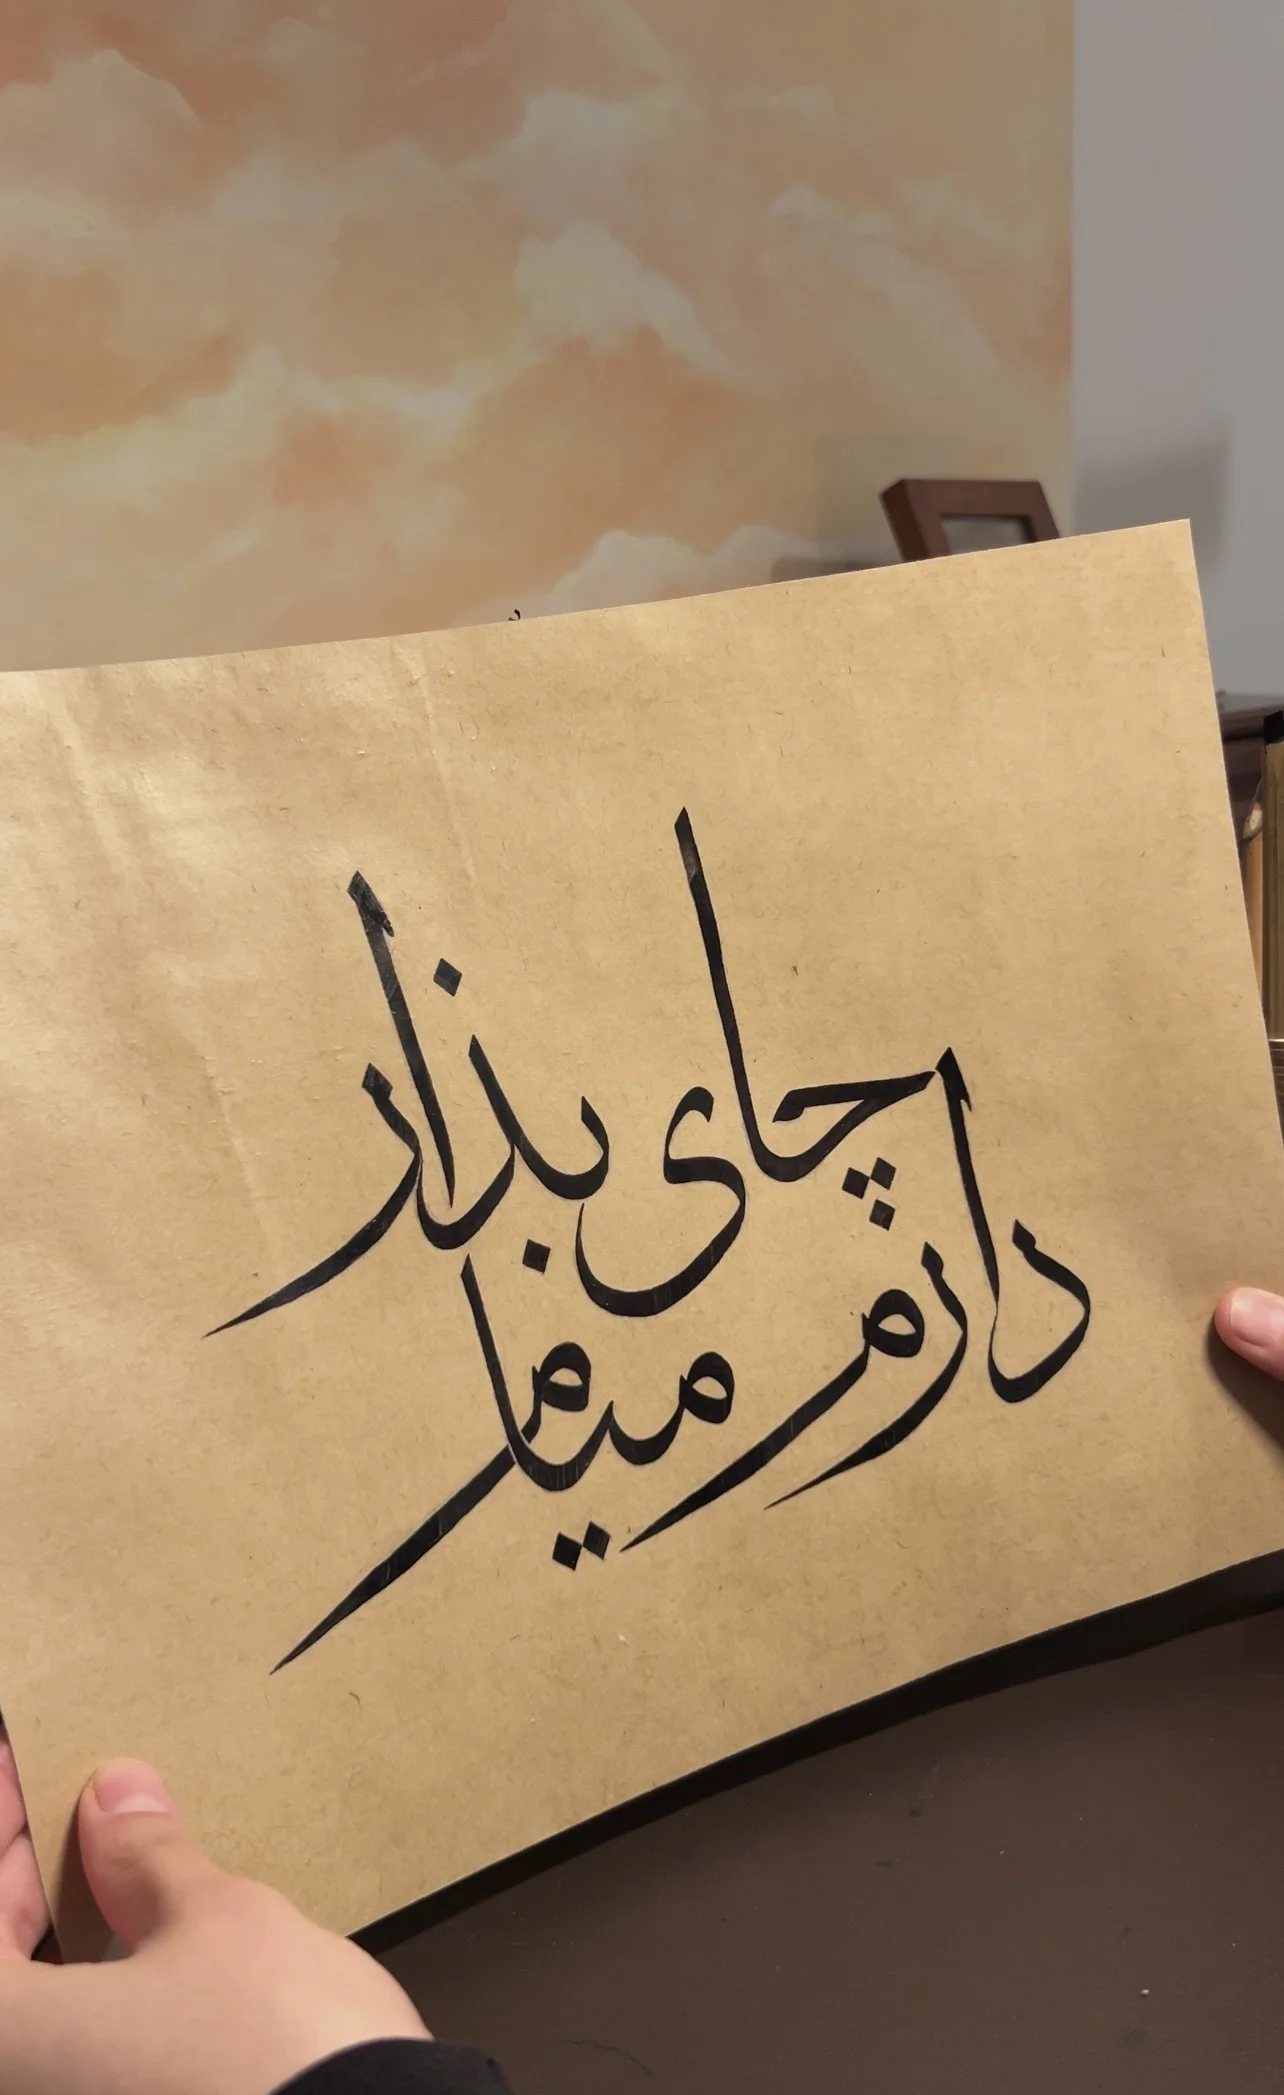 چای بذار
دارم میام